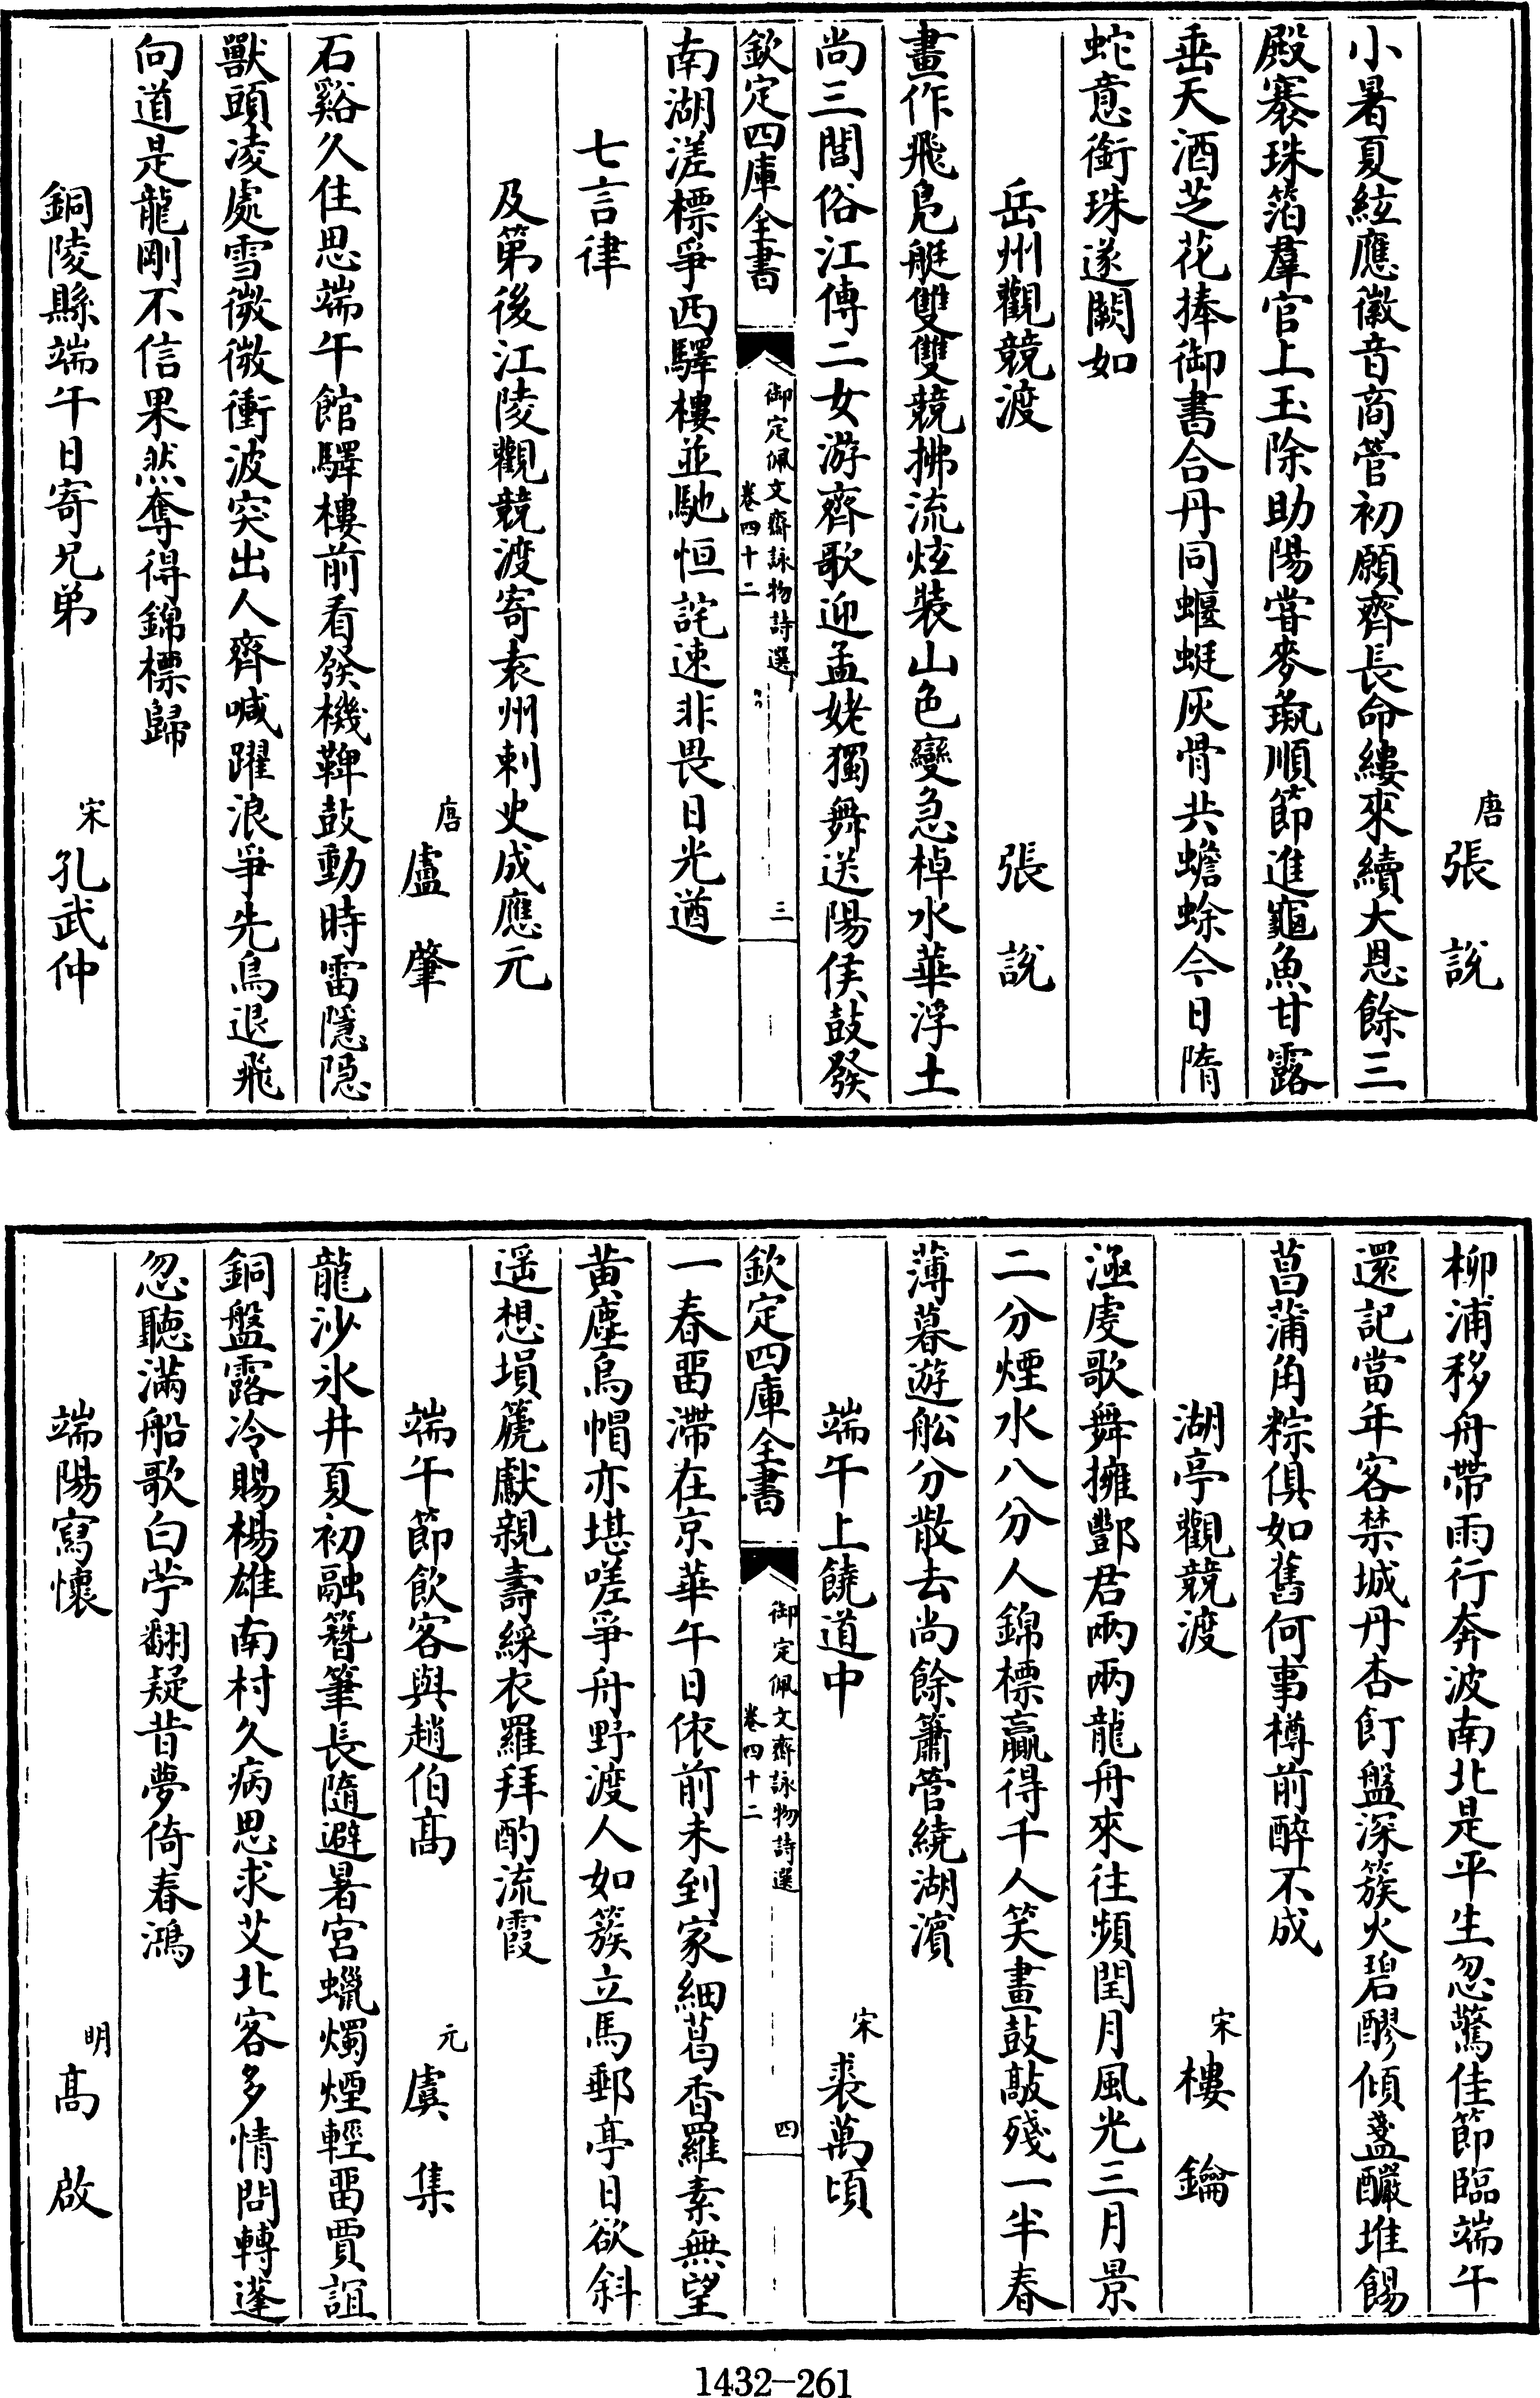 唐張說
小暑夏絃應徽音商管初願齊長命縷來續大恩餘三
殿褰珠箔羣官上玉除助陽嘗麥彘順節進龜魚甘露
垂天酒芝花捧御書合丹同蝘蜓灰骨共蟾蜍今日隋
蛇意銜珠遂闕如
岳州觀競渡 張說
畫作飛鳧艇雙雙競拂流炫裝山色變急棹水華浮土
尚三閭俗江傳二女游齊歌迎孟姥獨舞送陽侯鼓發
欽定四庫全書 御定佩文齋詠物詩選 卷四十二 三
南湖溠標爭西驛樓並馳恒詫速非畏日光遒
七言律
及第後江陵觀競渡寄袁州刺史成應元
唐盧肇
石谿久住思端午館驛樓前看發機鞞鼓動時雷隱隱
獸頭凌處雪微微衝波突出人齊喊躍浪爭先鳥退飛
向道是龍剛不信果然奪得錦標歸
銅陵縣端午日寄兄弟 宋孔武仲
柳浦移舟帶雨行奔波南北是平生忽驚佳節臨端午
還記當年客禁城丹杏飣盤深簇火碧醪傾盞釅堆餳
菖蒲角粽俱如舊何事樽前醉不成
湖亭觀競渡 宋樓鑰
涵虛歌舞擁酆君兩兩龍舟來往頻閏月風光三月景
二分煙水八分人錦標贏得千人笑畫鼓敲殘一半春
薄暮遊舩分散去尚餘簫管繞湖濱
端午上饒道中 宋裘萬頃
欽定四庫全書 御定佩文齋詠物詩選 卷四十二 四
一春畱滯在京華午日依前未到家細葛香羅素無望
黃塵烏帽亦堪嗟爭舟野渡人如簇立馬郵亭日欲斜
遥想塤篪獻親壽綵衣羅拜酌流霞
端午節飲客與趙伯髙 元虞集
龍沙氷井夏初融簪筆長隨避暑宮蠟燭煙輕畱賈誼
銅盤露冷賜楊雄南村久病思求艾北客多情問轉蓬
忽聽滿船歌白苧翻疑昔夢倚春鴻
端陽寫懷 明髙啟
1432-261